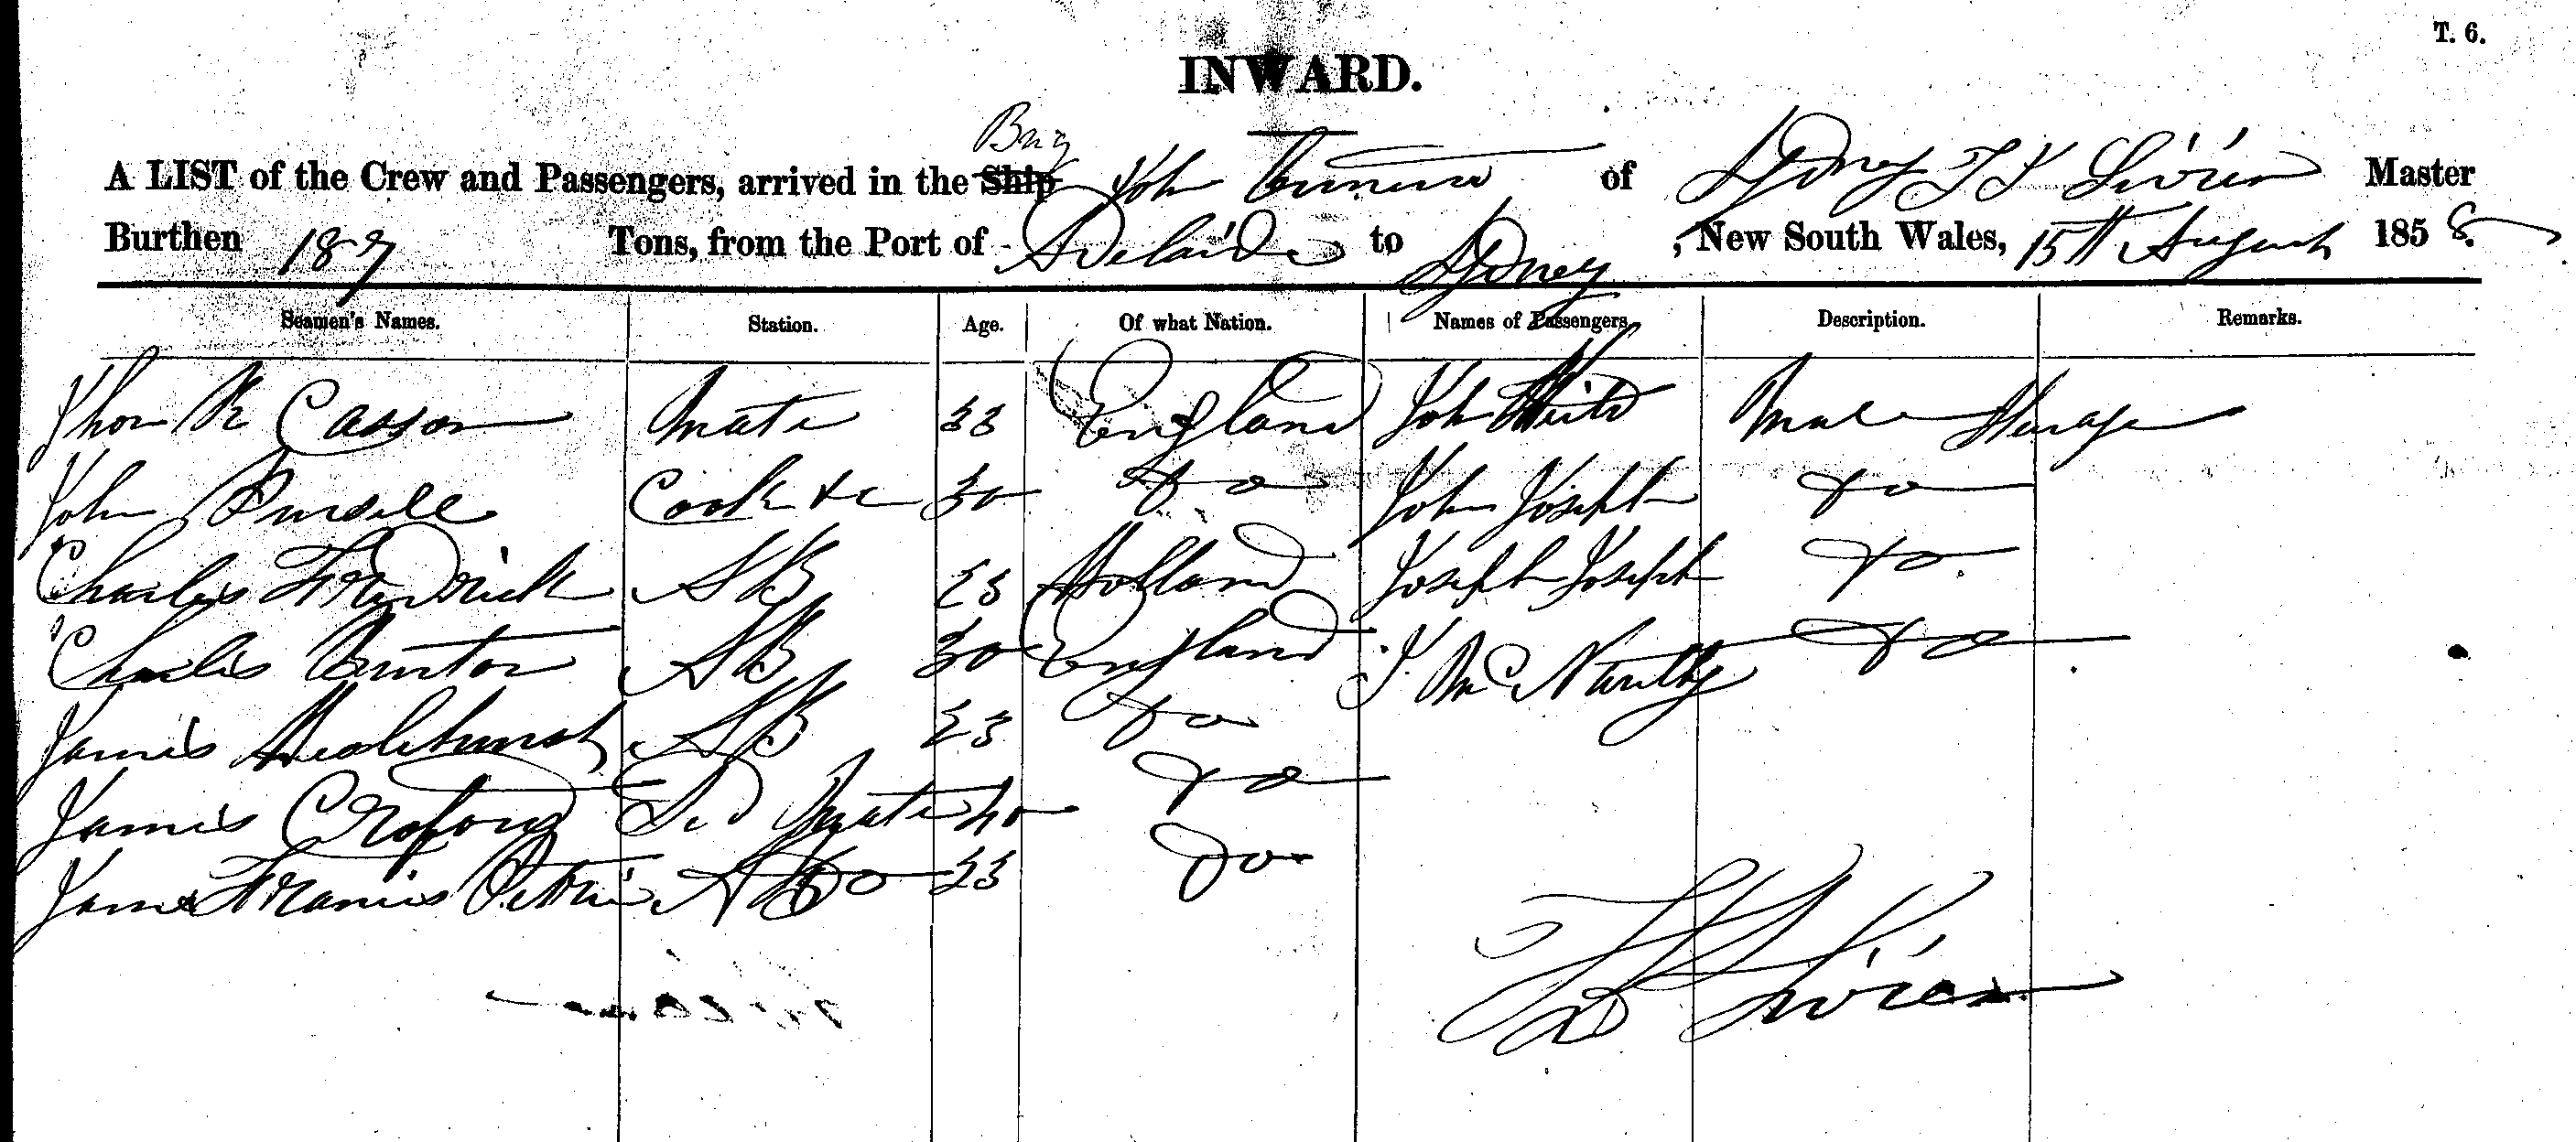 T. 6.
INWARD.
Brig
A LIST of the Crew and Passengers, arrived in the Ship John of Sydney Master
Burthen 187 Tons, from the Port of Adelaide to Sydney, New South Wales, 15th August 1858.
Seamen's Names. Station. Age. Of what Nation. Names of Passengers Description. Remarks.
Thos R Casson Mate 33 England John Male Steerage
John Cook &c 30 Do John Joseph Do
Charles Fredrick AB 23 Holland Joseph Joseph Do
Charles AB 30 England Do
James AB 23 Do
James Croford Mate 40 Do
James Francis AB 23 Do